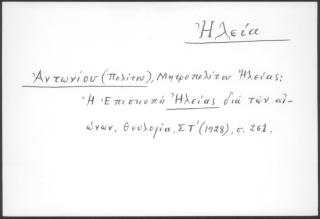 Ἠλεία
Ἀντωνίου (Πολίτου), Μητροπολίτου Ἠλείας:
Ἡ Ἐπισκοπὴ Ἠλείας διὰ τῶν αἰ-
ώνων. Θεολογία, ΣΤ΄ (1928), σ. 261.